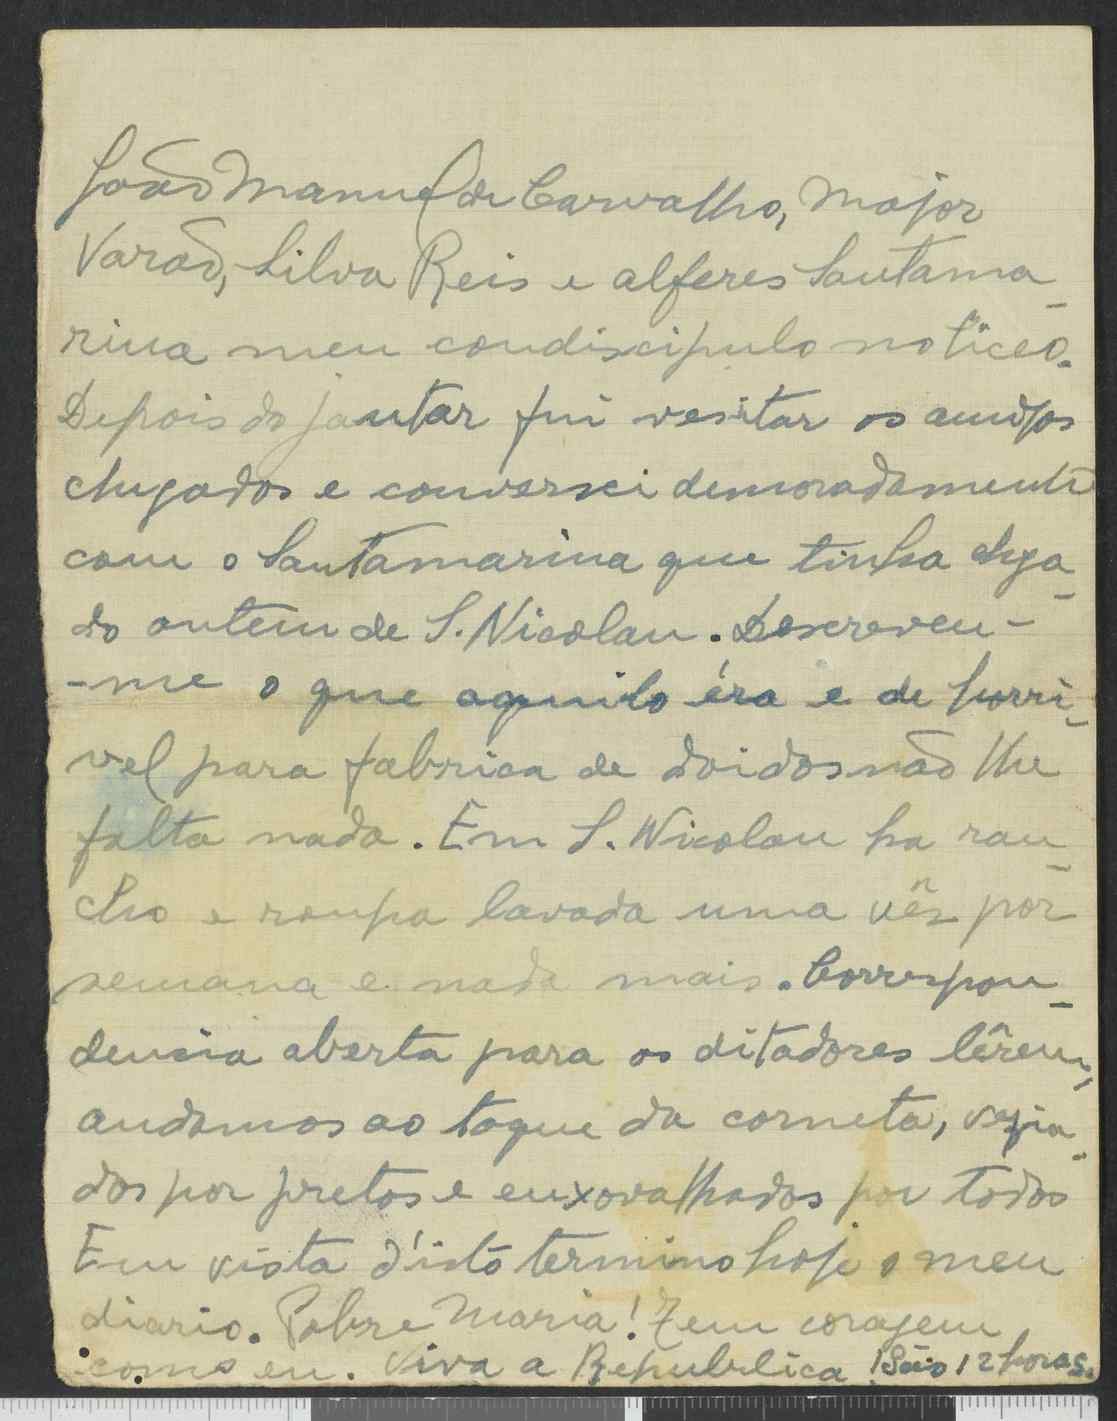 João Manuel de Carvalho, Major
Varão, Silva Reis e alferes Santama-
rina meu condiscipulo no liceo.
Depois do jantar fui vesitar os amigos
chegados e conversei demoradamente
com o Santamarina que tinha chega-
do ontem de S. Nicolau. Descreveu-
-me o que aquilo éra e de horri-
vel para fabrica de doidos não lhe
falta nada. Em S. Nicolau ha ran-
cho e roupa lavada uma vês pôr
semana e nada mais. Correspon-
dencia aberta para os ditadores lêrem,
andamos ao toque da corneta, vegia-
dos por pretos e enxovalhados por todos
Em vista d'isto termino hoje o meu
diario. Pobre Maria! Tem coragem
como eu. Viva a Republica! São 12 horas.